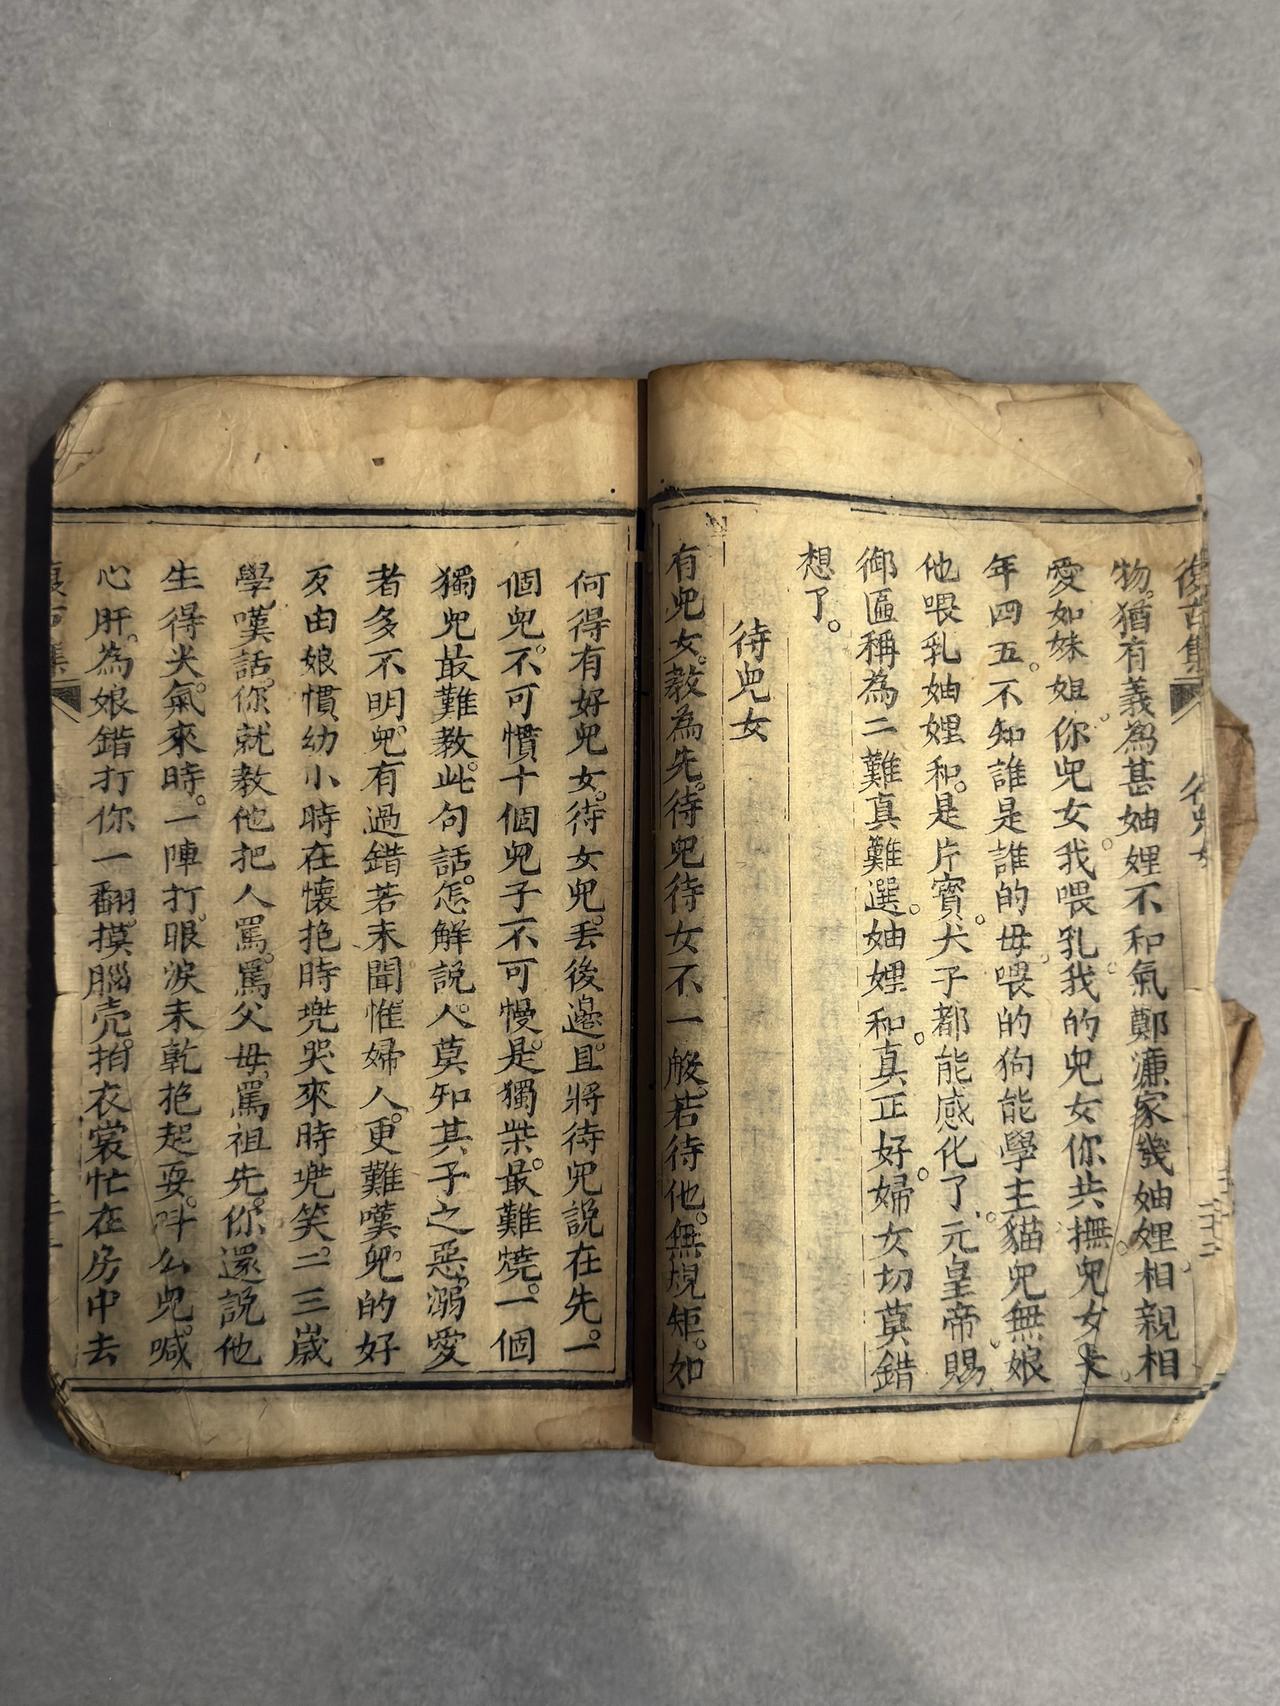 復古集 待兒女
物。猶有義為甚妯娌不和氣鄭濂家幾妯娌相親相
愛如妹姐。你兒女我喂乳。我的兒女你共撫。兒女大。
年四五。不知誰是誰的毋。喂的狗能學主貓兒無娘
他喂乳妯娌和。是片寶。犬子都能感化了。元皇帝賜
御匾稱為二難真難選。妯娌和。真正好。婦女切莫錯
想了。
待兒女
有兒女。教為先。待兒待女不一般。若待他。無規矩。如
何得有好兒女。待女兒。丟後邊。且將待兒說在先。一
個兒。不可慣十個兒子不可慢。是獨柴。最難燒。一個
獨兒最難教。此句話。怎解説。人莫知其子之惡。溺愛
者多不明。兒有過錯若未聞。惟婦人。更難嘆。兒的好
歹由娘慣幼小時在懷抱時兠哭來時兠笑。二三歲
學嘆話。你就教他把人罵。罵父毋。罵祖先。你還說他
生得犬。氣來時。一陣打。眼淚未乾抱起耍。呌公兒。喊
心肝。為娘錯打你一翻。摸腦壳。拍衣裳忙在房中去